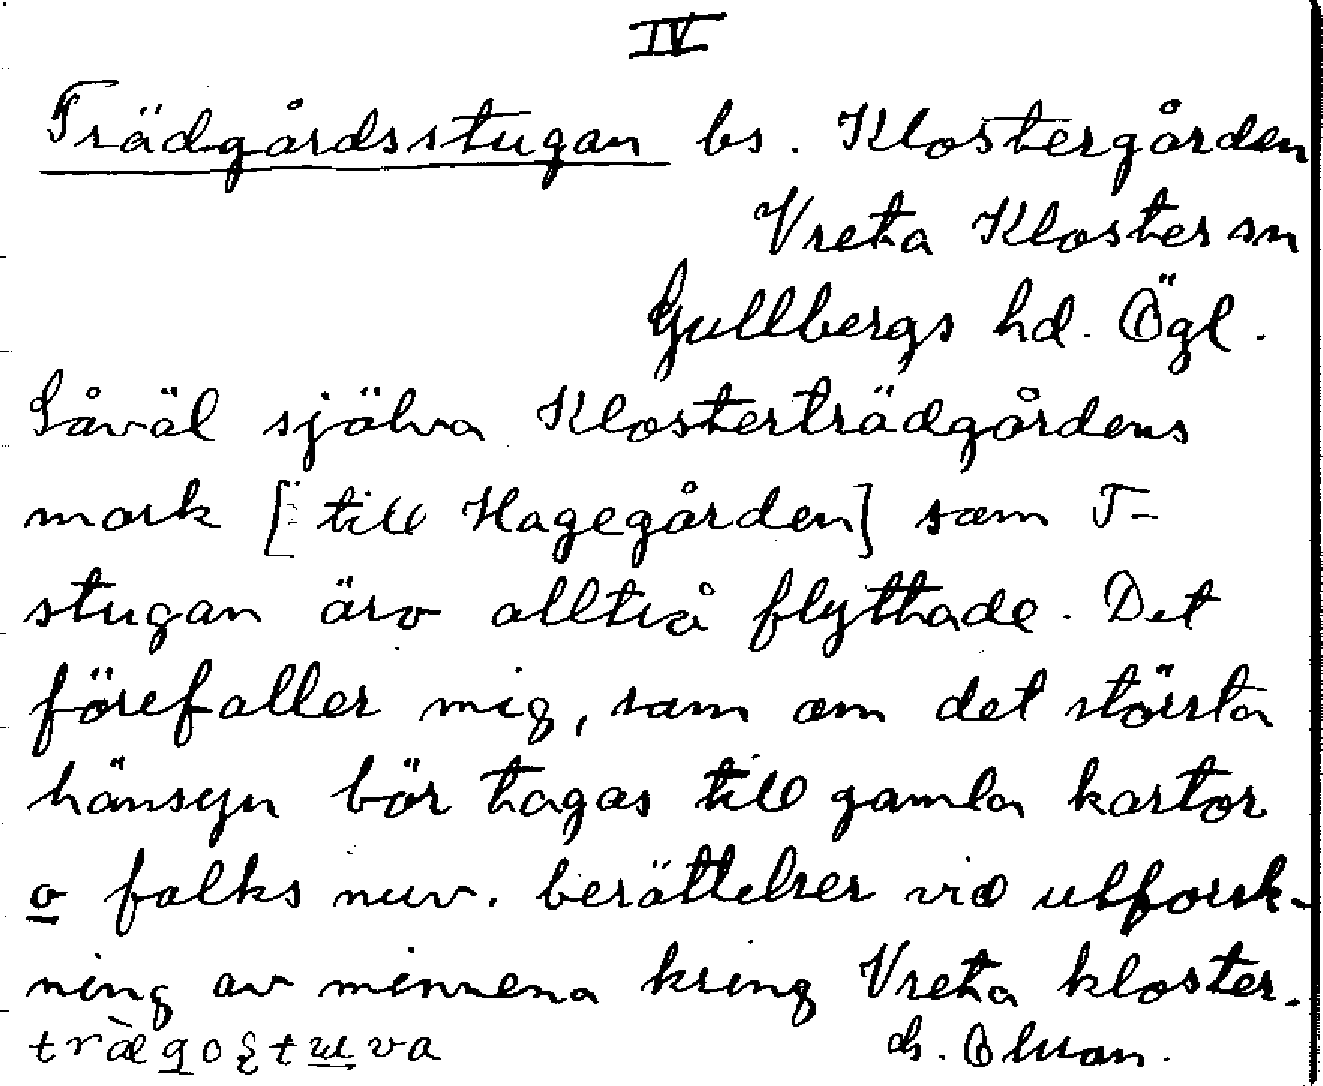 IV
Trädgårdsstugan bs. Klostergården
Vreta Kloster sn
Gullbergs hd. Ögl.
Såväl själva Klosterträdgårdens
mark [: till Hagegården] som T-
stugan äro alltså flyttade. Det
förefaller mig, som om det största
hänsyn bör tagas till gamla kartor
o folks nuv. berättelser vid utforsk-
ning av minnena kring Vreta kloster.